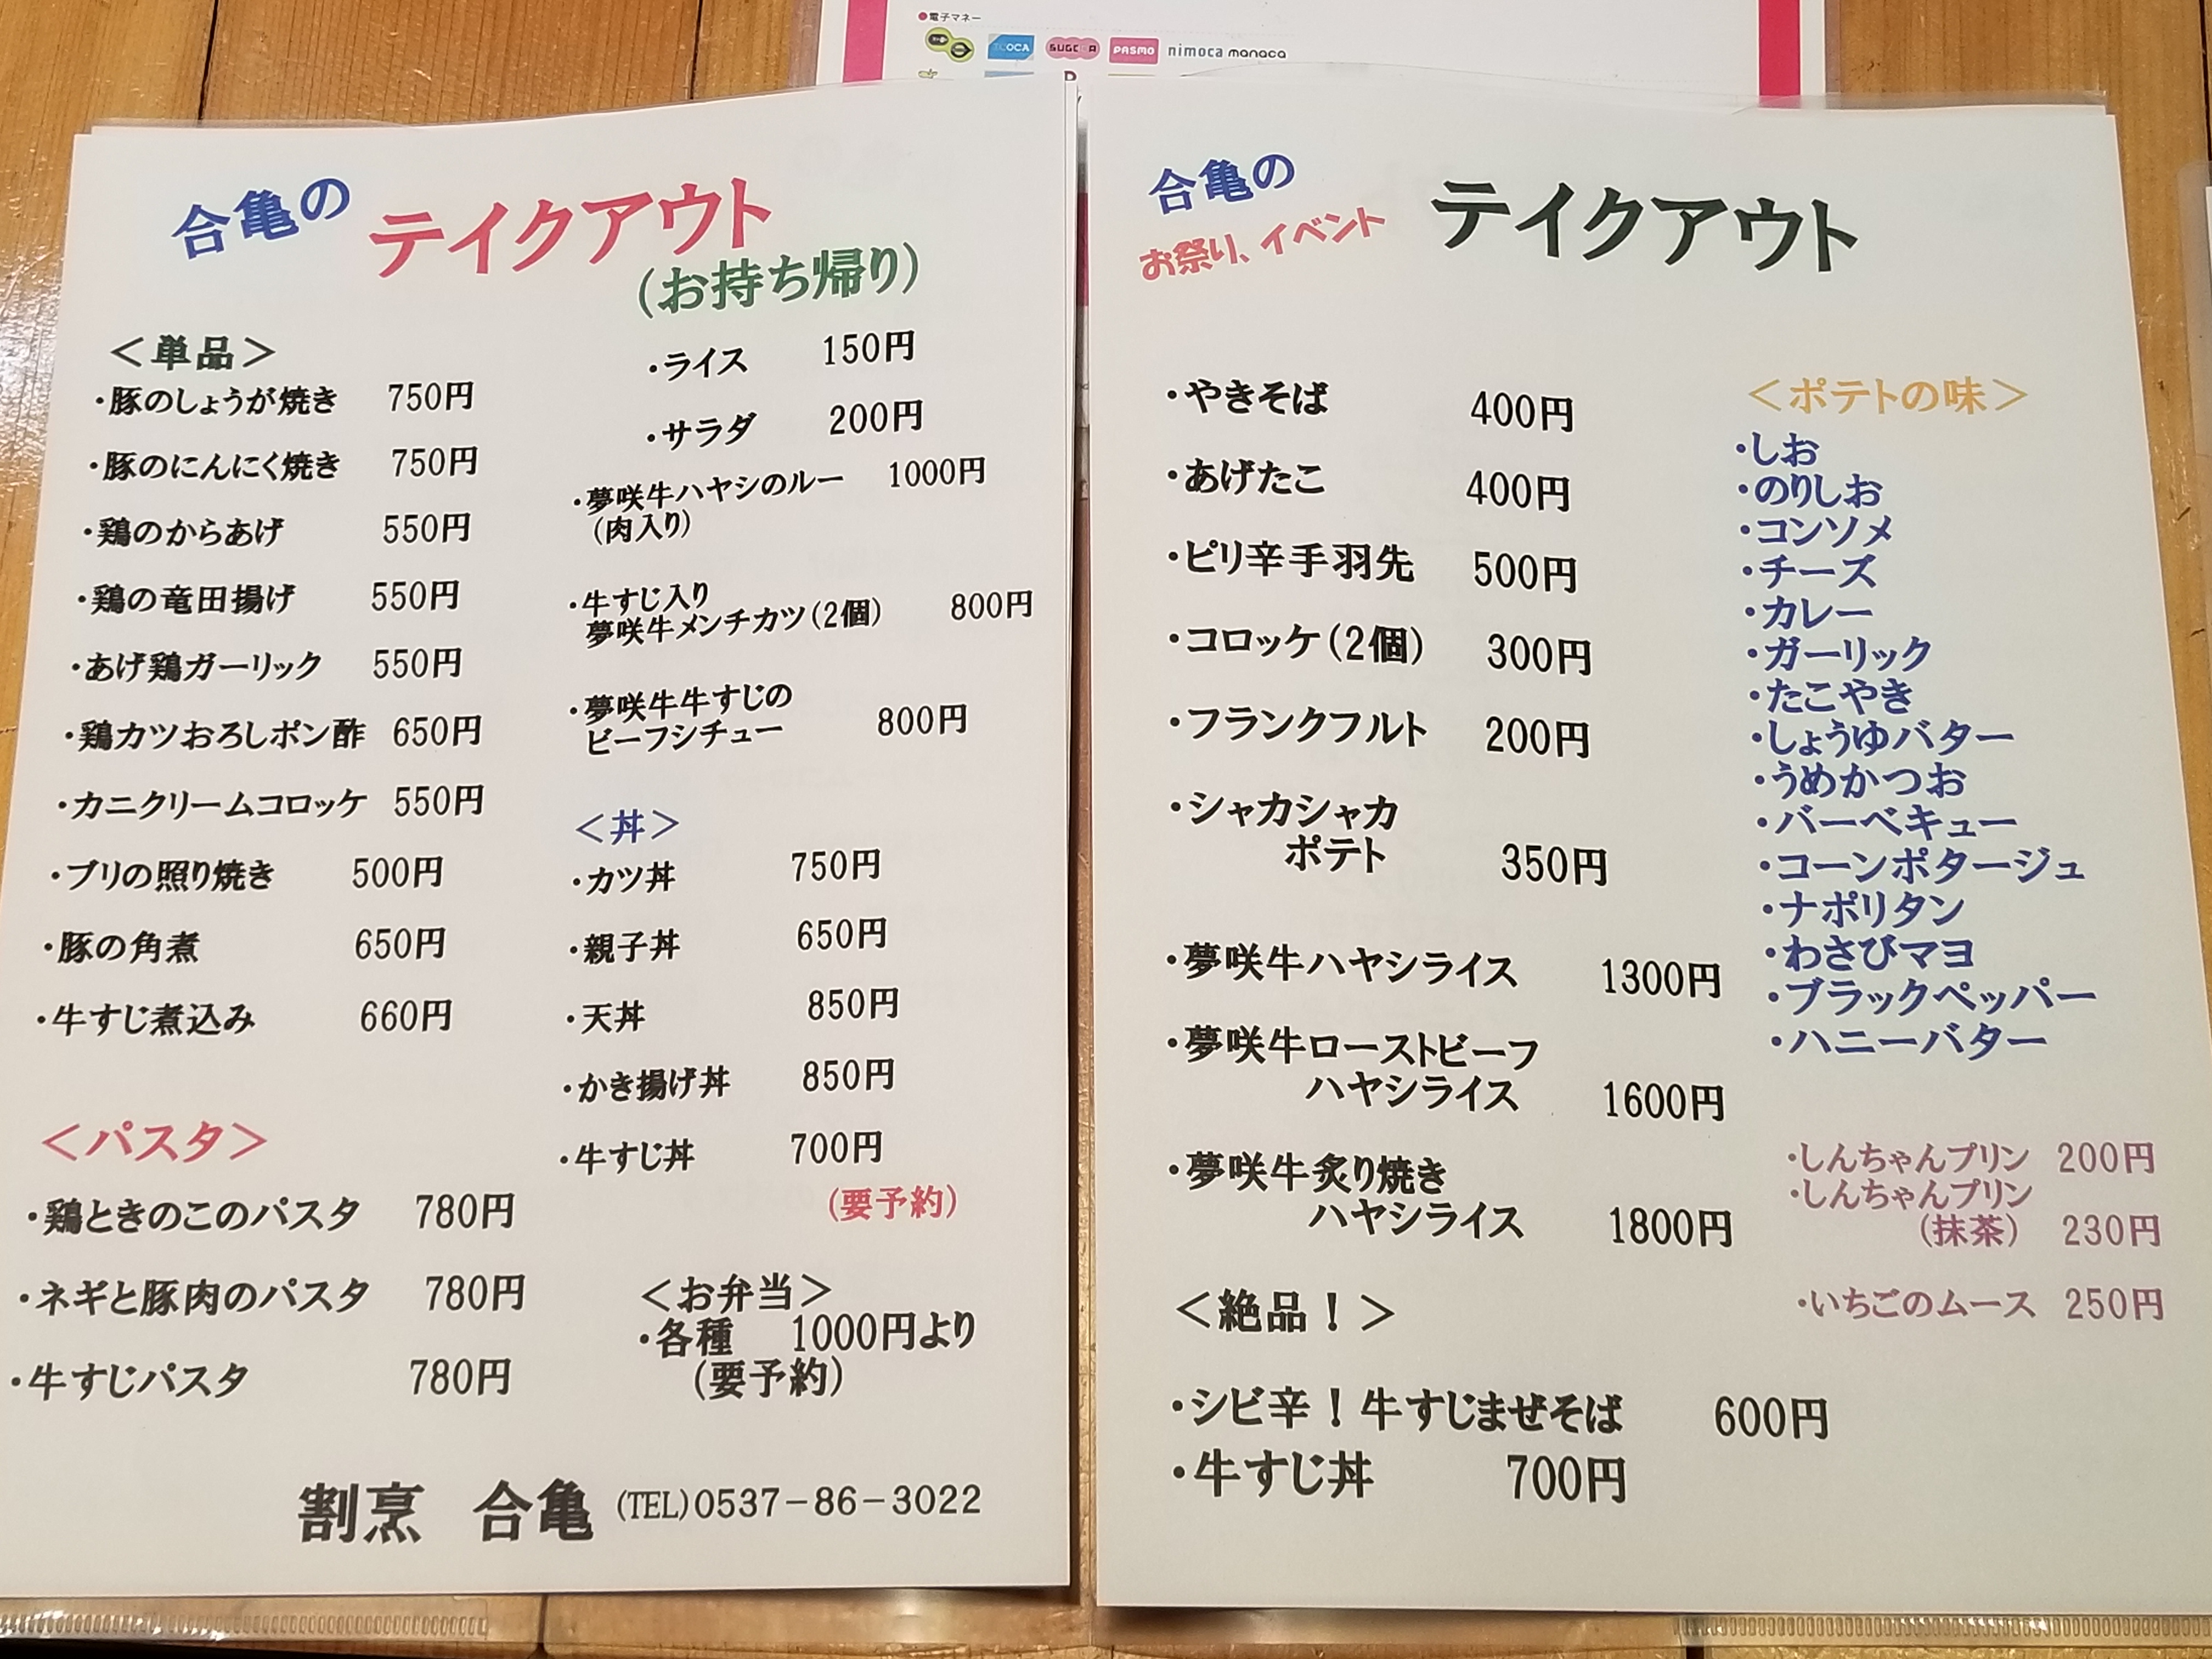 ●電子マネー
TOICA SUGOCA PASMO nimoca manaca
合亀の
テイクアウト
(お持ち帰り)
＜単品＞
・豚のしょうが焼き 750円
・豚のにんにく焼き 750円
・鶏のからあげ 550円
・鶏の竜田揚げ 550円
・あげ鶏ガーリック 550円
・鶏カツおろしポン酢 650円
・カニクリームコロッケ 550円
・ブリの照り焼き 500円
・豚の角煮 650円
・牛すじ煮込み 660円
＜パスタ＞
・鶏ときのこのパスタ 780円
・ネギと豚肉のパスタ 780円
・牛すじパスタ 780円
・ライス 150円
・サラダ 200円
・夢咲牛ハヤシのルー 1000円
(肉入り)
・牛すじ入り
夢咲牛メンチカツ(2個) 800円
・夢咲牛牛すじの
ビーフシチュー 800円
＜丼＞
・カツ丼 750円
・親子丼 650円
・天丼 850円
・かき揚げ丼 850円
・牛すじ丼 700円
(要予約)
＜お弁当＞
・各種 1000円より
(要予約)
割烹 合亀 (TEL)0537－86－3022
合亀の
お祭り、イベント
テイクアウト
・やきそば 400円
・あげたこ 400円
・ピリ辛手羽先 500円
・コロッケ(2個) 300円
・フランクフルト 200円
・シャカシャカ
ポテト 350円
・夢咲牛ハヤシライス 1300円
・夢咲牛ローストビーフ
ハヤシライス 1600円
・夢咲牛炙り焼き
ハヤシライス 1800円
＜絶品！＞
・シビ辛！牛すじまぜそば 600円
・牛すじ丼 700円
＜ポテトの味＞
・しお
・のりしお
・コンソメ
・チーズ
・カレー
・ガーリック
・たこやき
・しょうゆバター
・うめかつお
・バーベキュー
・コーンポタージュ
・ナポリタン
・わさびマヨ
・ブラックペッパー
・ハニーバター
・しんちゃんプリン 200円
・しんちゃんプリン
(抹茶) 230円
・いちごのムース 250円